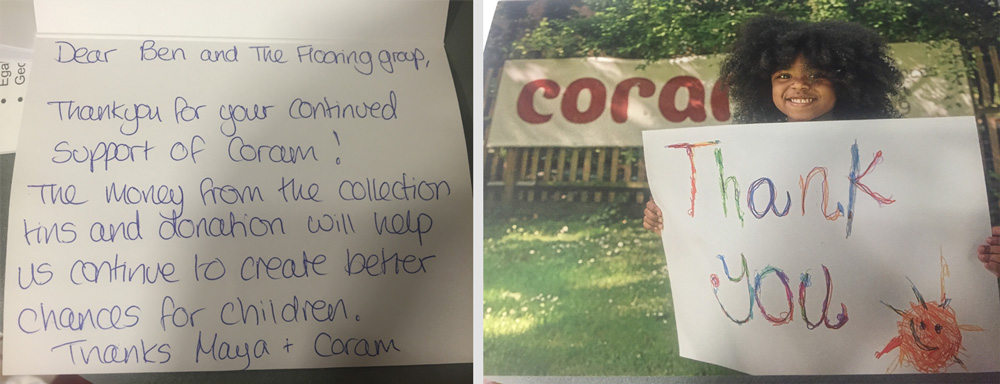 Dear Ben and The Flooring group,
Thankyou for your continued
support of Coram!
The money from the collection
tins and donation will help
us continue to create better
chances for children.
Thanks Maya + Coram
Ega
Geo
coram
Thank
you